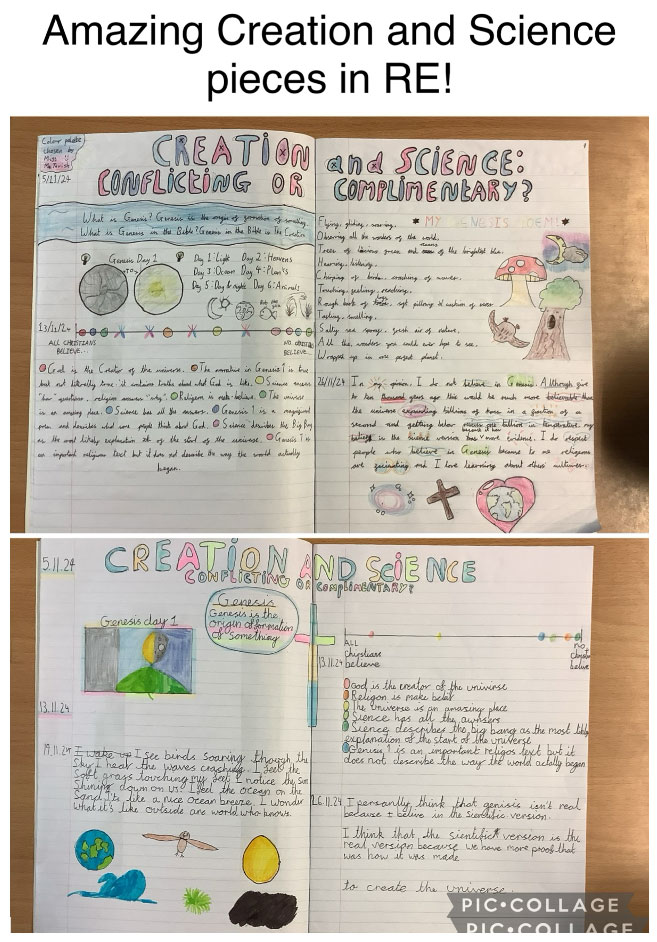 Amazing Creation and Science
pieces in RE!
Colour palete
chosen by
Miss
5/11/24
CREATION and SCIENCE:
CONFLICTING OR COMPLIMENTARY?
What is Genesis? Genesis is the origin of formation of something.
What is Genesis in the Bible? Genesis in the Bible is the Creation
Genesis Day 1
Day 1: Light Day 2: Heavens
Day 3: Ocean Day 4: Plants
Day 5: Day & night Day 6: Animals
TO
13/11/24
ALL CHRISTIANS
BELIEVE...
NO
BELIEVE...
God is the Creator of the universe. The narrative in Genesis 1 is true
but not literally true it contains truths about what God is like. Science answers
"how" questions, religion answers "why". Religion is make-believe. The universe
is an amazing place. Science has all the answers. Genesis 1 is a magnificent
poem and describes what some people think about God. Science describes the Big Bang
as the most likely explanation of the start of the universe. Genesis 1 is
an important religious text but it does not describe the way the world actually
began.
MY GENESIS POEM!
Flying, gliding, soaring,
Observing all the wonders of the world.
Trees of green and of the brightest blue.
Hearing, listening,
Chirping of birds, crashing of waves.
Touching, feeling, rendering,
Rough bark of trees, soft pillowy cushion of moss.
Tasting, smelling,
Salty sea spray, fresh air of nature,
All the wonders you could ever hope to see,
Wrapped up in one perfect planet.
26/11/24 In my opinion, I do not believe in Genesis. Although give
to ten thousand years ago this would be much more believable than
the universe expanding billions of times in a fraction of a
second and getting below one billion in temperature, my
belief is in the science version because it has more evidence. I do respect
people who believe in Genesis because to me religions
are fascinating and I love learning about other cultures.
5.11.24
CREATION AND SCIENCE
CONFLICTING OR COMPLIMENTARY?
Genesis
Genesis is the
origin of formation
of something
Genesis day 1
13.11.24
ALL
christians
believe
no
believe
13.11.24
God is the creator of the universe
Religon is make belief
The universe is an amazing place
Sience has all the awnsers
Sience describes the big bang as the most likly
explanation of the start of the universe
Genesis 1 is an important religos text but it
does not describe the way the world actally began
19.11.24 I wake up I see birds soaring through the
sky I hear the waves crashing. I feel the
soft grass touching my feet I notice the sun
shining down on us. I feel the ocean on the
sand it's like a nice ocean breeze. I wonder
what it's like outside are world who knows.
26.11.24 I persanlly think that genisis isn't real
because I belive in the scientific version.
I think that the sientific version is the
real version because we have more proof that
was how it was made
to create the universe.
PIC•COLLAGE
PIC•COLLAGE